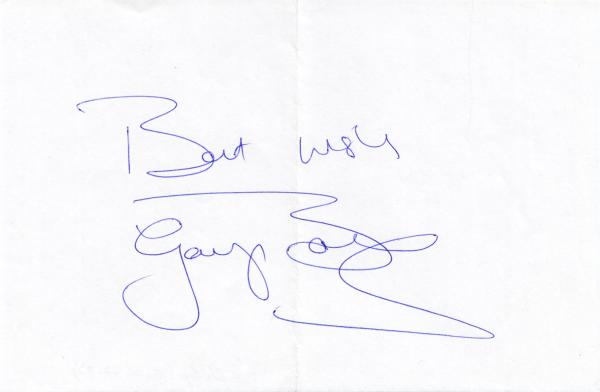 Best wishes
Gary